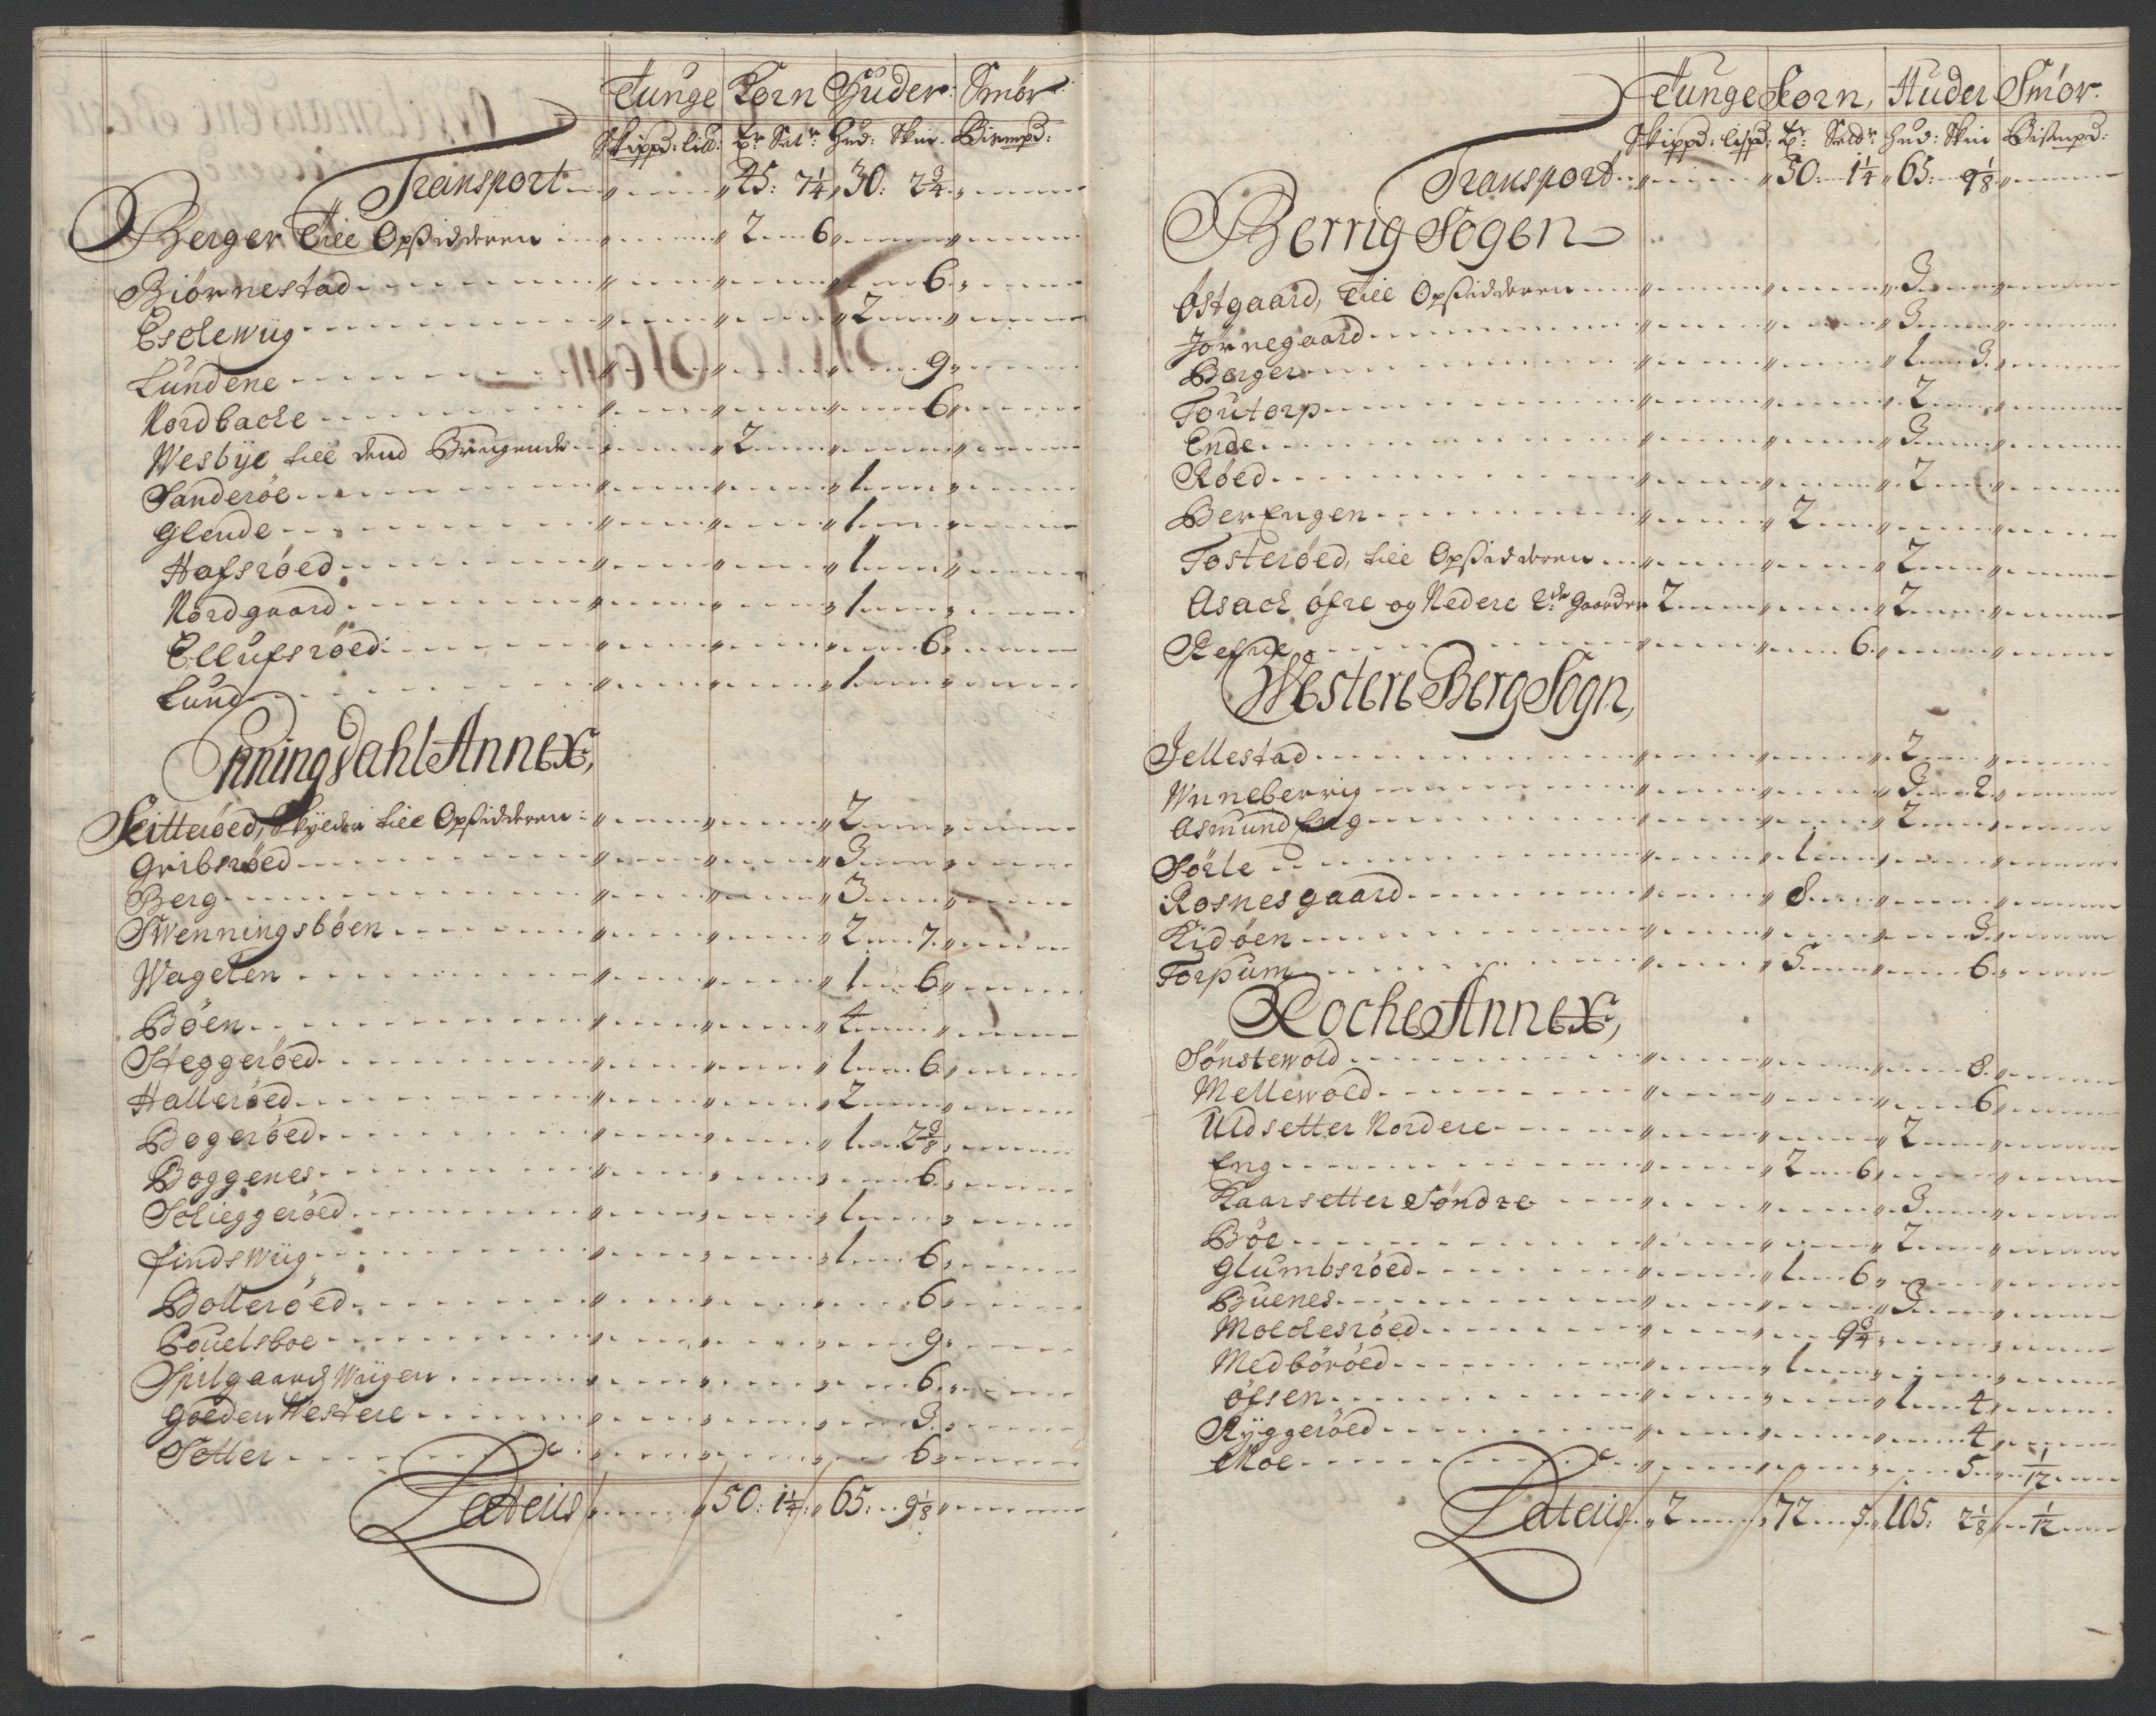 Tunge Korn Huder Smör
Skippd: lisd: Sel: Hud: Skin. Bismpd:
Transport 45: 7 1/4 30: 2 3/4
Berger Till Opsidderen 2 6
Biörnestad 6
Esslewiig 2
Lundene 9
Nordbacke 6
Wesbye till dend Brugende 2
Sanderöe 1
Glende 1
Hafsröed 1
Nordgaard 1
Ellufsröed 6
Lund 1
Enningdahl Annex,
Kitteröed, Skylder till Opsidderen 2
Gribsröed 3
Berg 3
Swenningsböen 2 7
Wagelen 1 6
Böen 4
Steggeröed 1 6
Halleröed 2
Bogeröed 1 2 3/8
Boggenes 6
Schieggeröed 1
Findswiig 1 6
Bolleröed 6
Pouelsboe 9
Spilgaards Wiigen 6
Goeden Westere 3
Setter 6
Lateris 50: 1 1/4 65: 9 1/8
Tunge Korn, Huder Smör.
Skippd: lispd: Seldr Hud: Skin Bismpd:
Transport 50: 1 1/4 65: 9 1/8
Berrig Sogen
Östgaard, Till Opsidderen 3
Jörnegaard 3
Berger 1 3
Toutorp 2
Ende 3
Röed 2
Ber Engen 2
Tosteröed, till Opsidderen 2
Asack öfre og Nedere 2de Gaarder 2 2
Refne 6
Westere Berg Sogn,
Jellestad 2
Wnneberrig 3 2
Asmund Eng 2
Sörle 1
Rosnesgaard 8
Kidöen 3
Torpum 5 6
Rocke Annex,
Sönstewold 8
Mellewold 6
Uldsetter Nordere 2
Eng 2 6
Kaarsetter Söndre 3
Böe 2
Glumbsröed 1 6
Buenes 3
Molckesröed 9 3/4
Medböröed 1
Öfsen 1 4
Ryggeröed 4
Moe 5 1/12
Lateris 2 72 5 105: 2 1/8 1/12